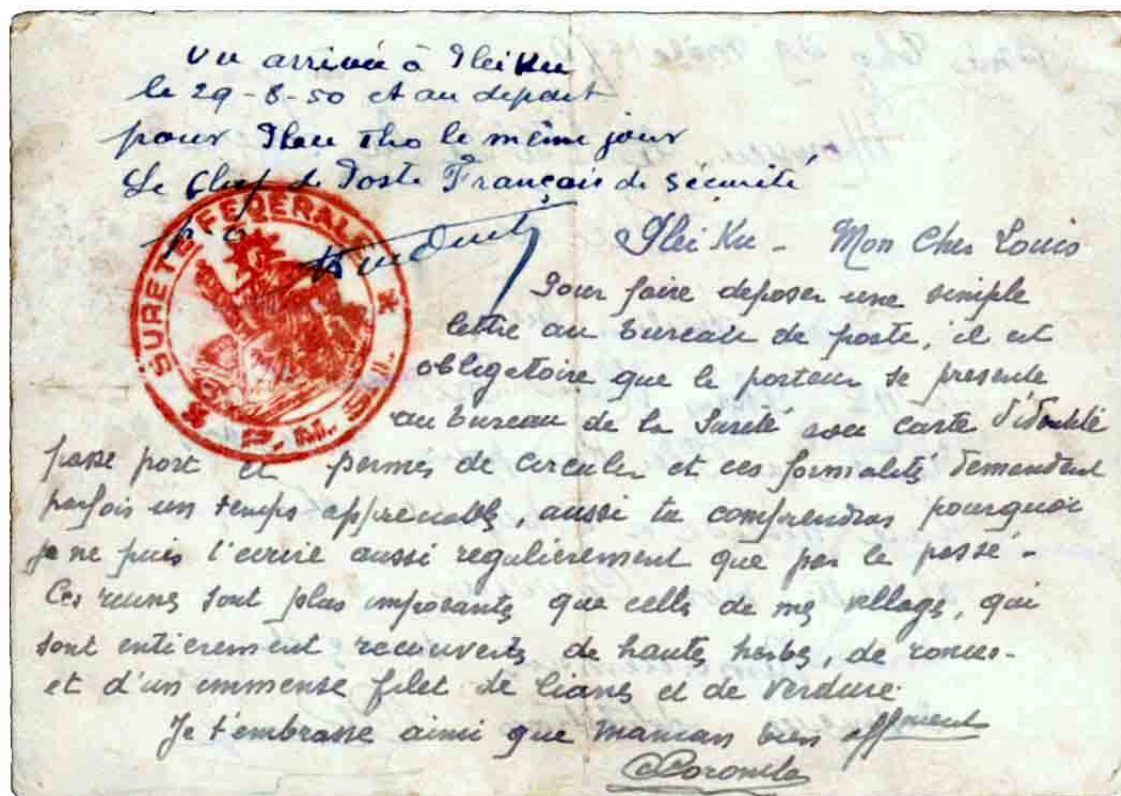 Vu arrivée à Pleiku
le 29-8-50 et au depart
pour Phu Tho le même jour
Le Chef de Poste Français de Sécurité
SURETE FEDERALE
S.P.M.S.I.
Plei Ku - Mon Cher Louis
Pour faire deposer une simple
lettre au bureau de poste, il est
obligatoire que le porteur se presente
au bureau de la Sureté avec carte d'identité
passe port et permis de circuler et ces formalité demandent
parfois un temps appreciable, aussi tu comprendras pourquoi
je ne puis t'ecrire aussi regulierement que par le passé -
Ces ruines sont plus imposantes que celles de mes villages, qui
sont entierement recouverts de hautes herbes, de ronces -
et d'un immense filet de lianes et de verdure.
Je t'embrasse ainsi que maman bien affment